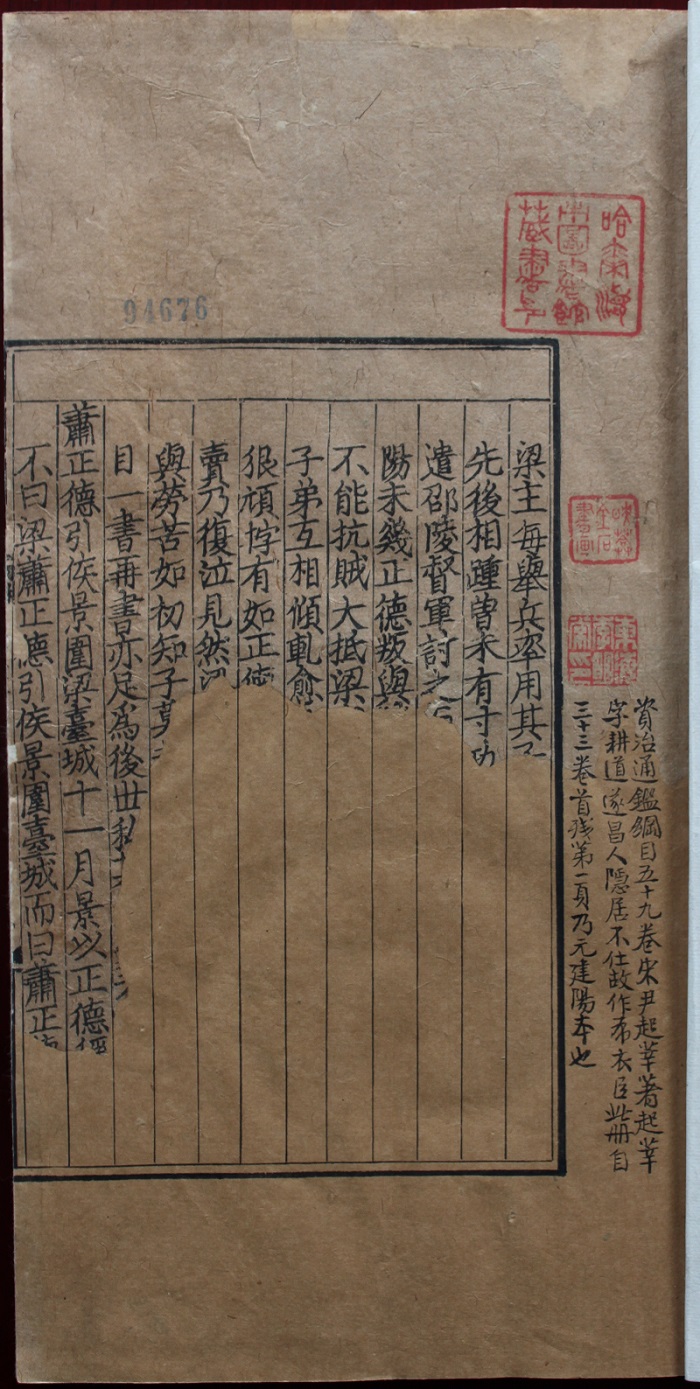 藏書印
金石
書畫
資治通鑑綱目五十九卷宋尹起莘著起莘
字耕道遂昌人隱居不仕故作布衣臣此册自
三十三卷首残第一頁乃元建陽本也
94676
梁主每舉兵率用其子
先後相踵曾未有寸功
遣邵陵督軍討之
陽未幾正德叛與
不能抗賊大抵梁
子弟互相傾軋愈
狠頑悖有如正德
賣乃復泣見然
與勞苦如初知子莫
目一書再書亦足爲後世
蕭正德引侯景圍梁臺城十一月景以正德
不曰梁蕭正德引侯景圍臺城而曰蕭正